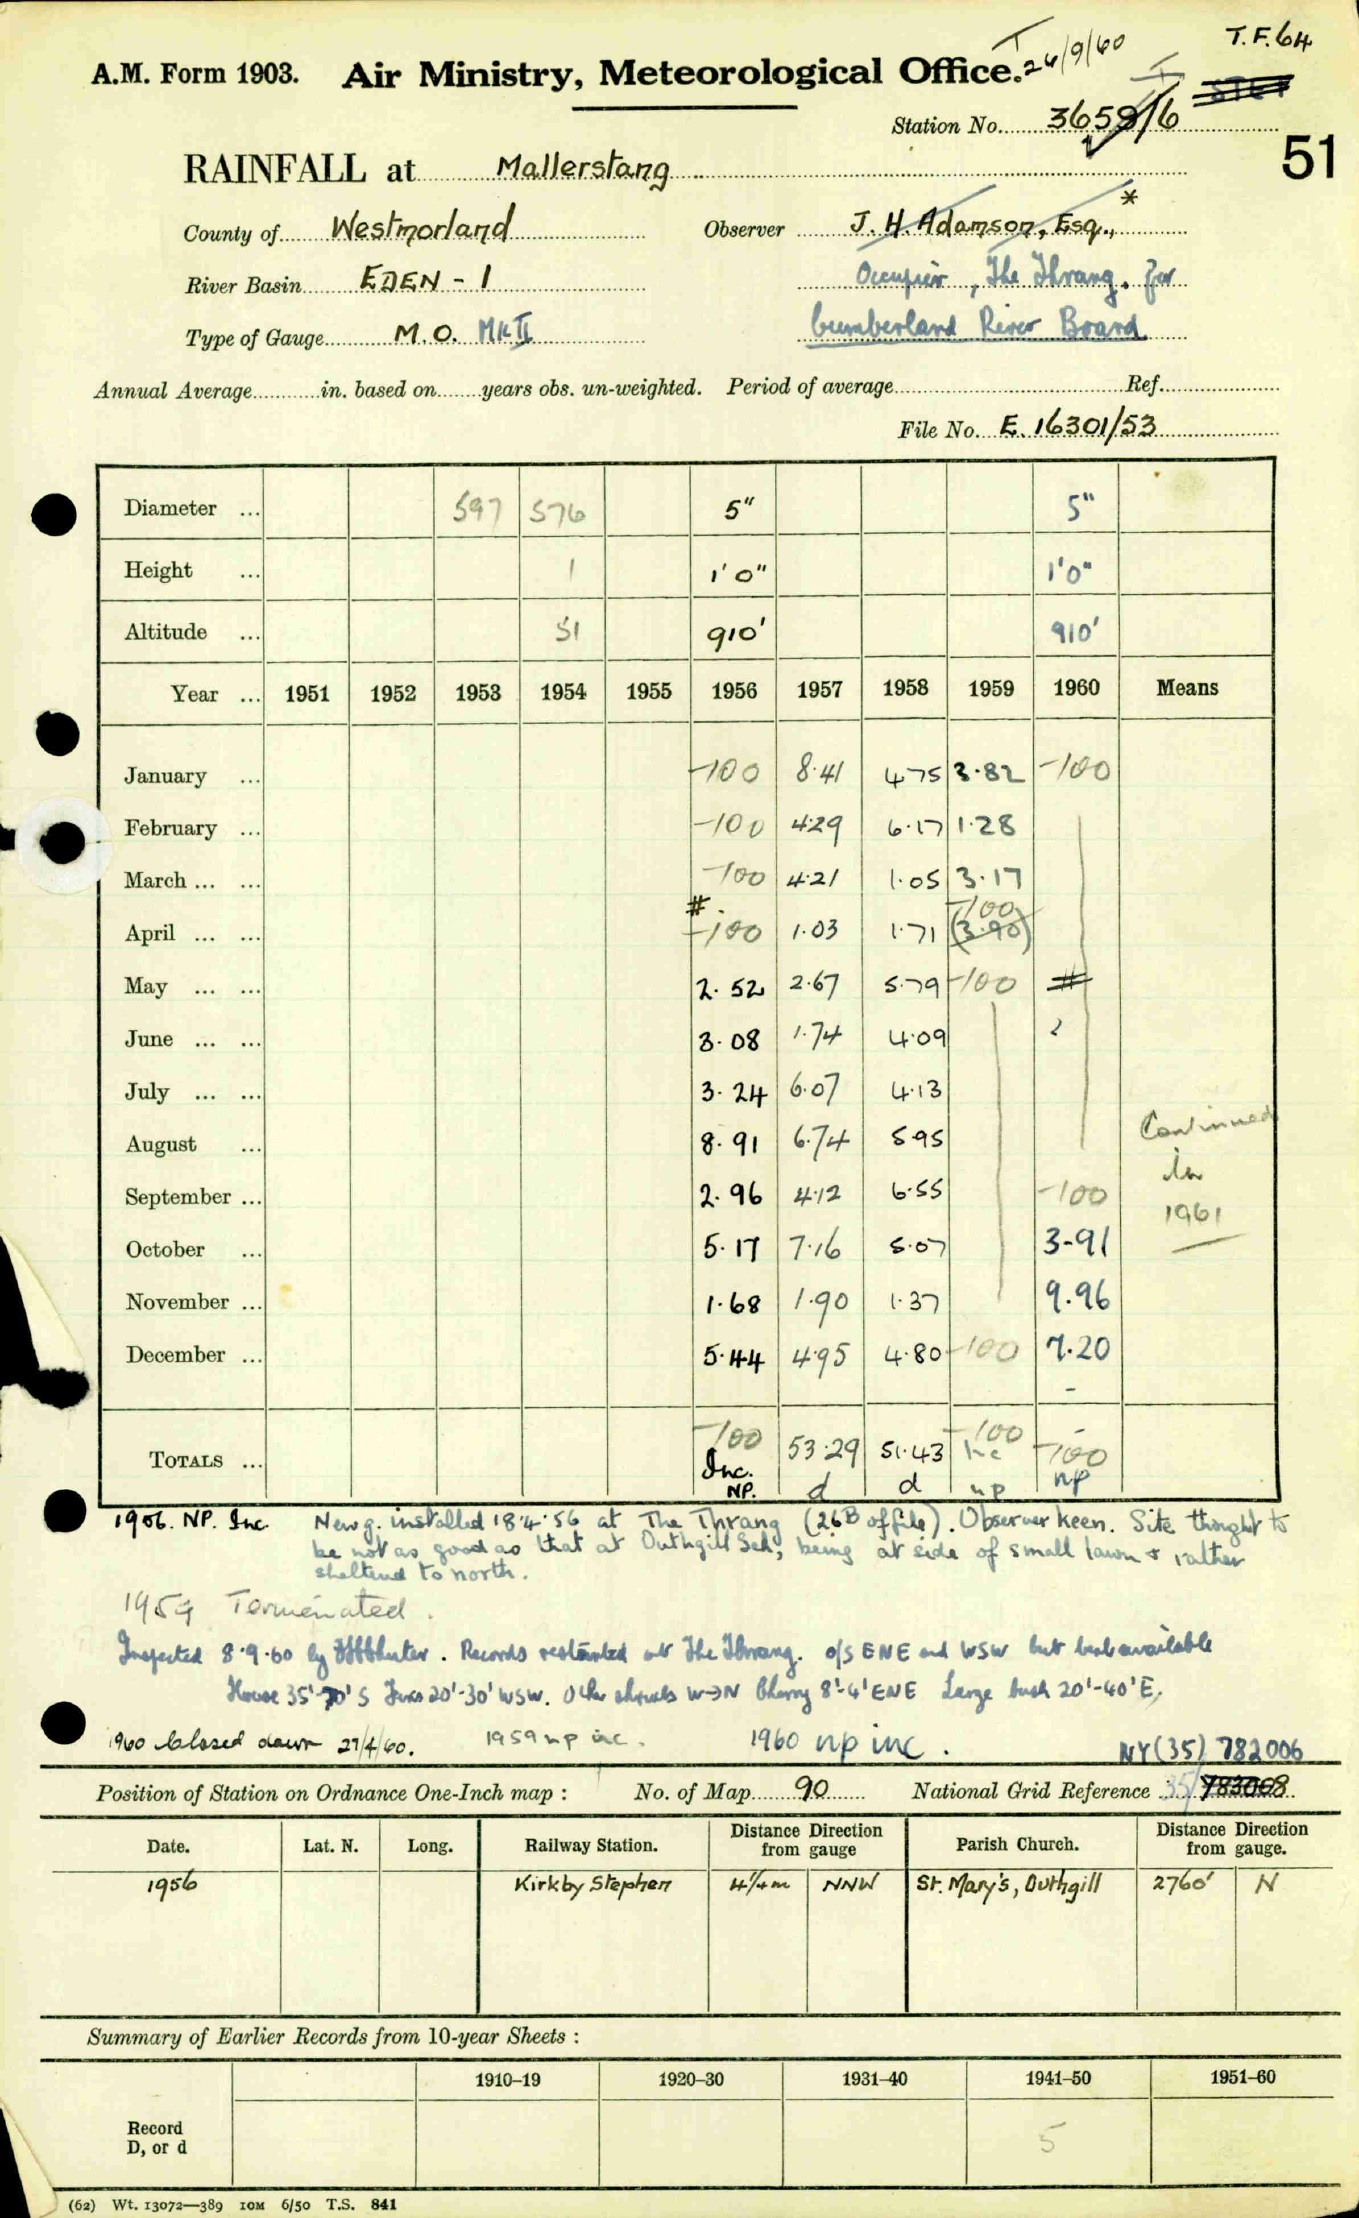 T.F.64
26/9/60
A.M. Form 1903. Air Ministry, Meteorological Office.
Station No. 3658/6
51
RAINFALL at Mallerstang
County of Westmorland Observer J. H. Adamson, Esq., *
River Basin EDEN - 1 Occupier, The Thrang. for
Type of Gauge M.O. Mk II Cumberland River Board
Annual Average in. based on years obs. un-weighted. Period of average Ref.
File No. E. 16301/53
Diameter ... 597 576 5" 5"
Height ... 1 1'0" 1'0"
Altitude ... 51 910' 910'
Year ... 1951 1952 1953 1954 1955 1956 1957 1958 1959 1960 Means
January ... -100 8.41 4.75 3.82 -100
February ... -100 4.29 6.17 1.28
March ... ... -100 4.21 1.05 3.17
April ... ... # -100 1.03 1.71 -100 (3.90)
May ... ... 2.52 2.67 5.79 -100 #
June ... ... 3.08 1.74 4.09
July ... ... 3.24 6.07 4.13
August ... 8.91 6.74 5.95 Continued
September ... 2.96 4.12 6.55 -100 in
October ... 5.17 7.16 5.07 3.91 1961
November ... 1.68 1.90 1.37 9.96
December ... 5.44 4.95 4.80 -100 7.20
TOTALS ... -100 53.29 51.43 -100 -100
Inc. NP. d d Inc np np
1956. NP. Inc. New g. installed 18.4.56 at The Thrang (26B of file). Observer keen. Site thought to
be not as good as that at Outhgill Sch, being at side of small lawn & rather
sheltered to north.
1959 Terminated.
Inspected 8.9.60 by. Records restarted at The Thrang. o/s ENE and WSW but best available
House 35'-70' S 20'-30' WSW. Other shrubs W→N Cherry 8'-4' ENE Large bush 20'-40' E.
1960 closed down 27/4/60. 1959 np inc. 1960 np inc. NY(35) 782006
Position of Station on Ordnance One-Inch map : No. of Map 90 National Grid Reference 35/783008
Date. Lat. N. Long. Railway Station. Distance Direction from gauge Parish Church. Distance Direction from gauge.
1956 Kirkby Stephen 4¼m NNW St. Mary's, Outhgill 2760' N
Summary of Earlier Records from 10-year Sheets :
1910–19 1920–30 1931–40 1941–50 1951–60
Record
D, or d 5
(62) Wt. 13072—389 10M 6/50 T.S. 841